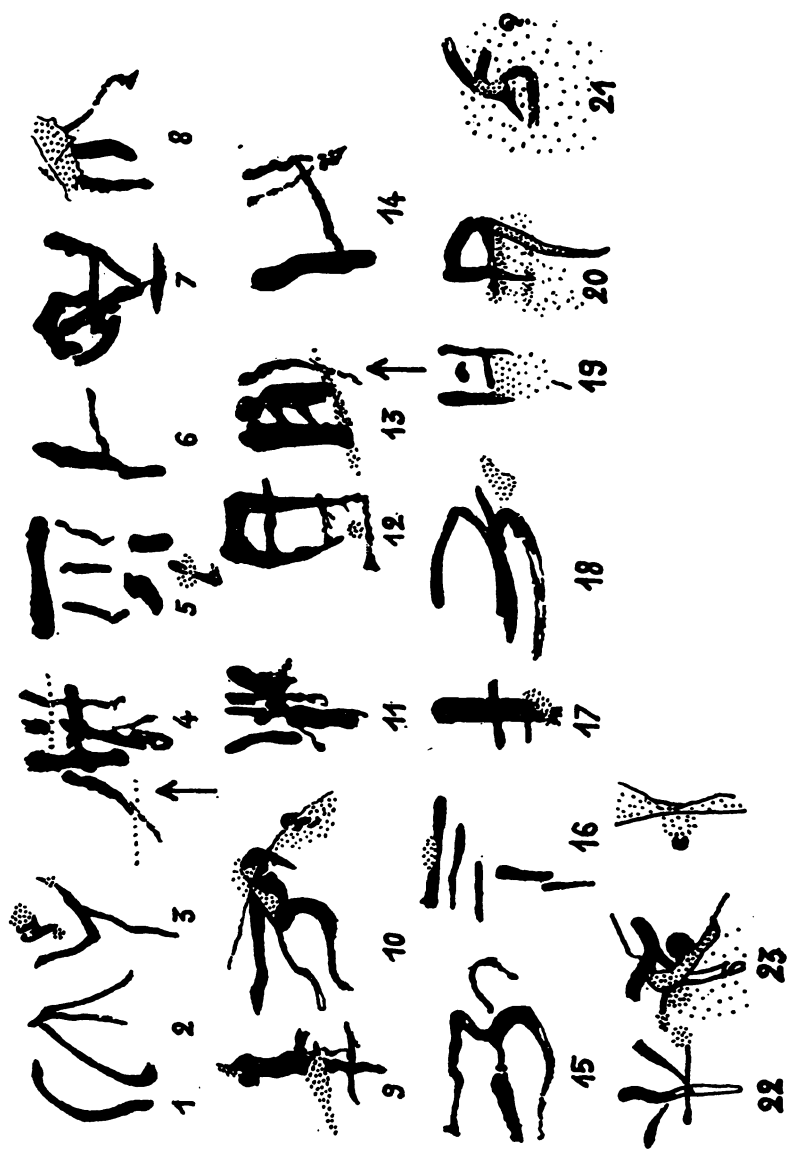 1 2 3 4 5 6 7 8
9 10 11 12 13 14
15 16 17 18 19 20 21
22 23